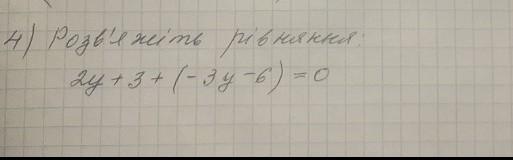 4) Розв'яжіть рівняння:
2y + 3 + (-3y - 6) = 0